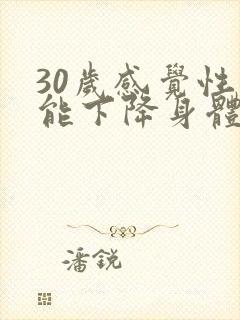 30歲感覺性
能下降身體
潘銳